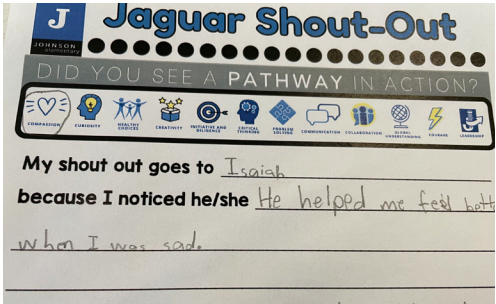 J
Jaguar Shout-Out
JOHNSON
elementary
DID YOU SEE A PATHWAY IN ACTION?
COMPASSION CURIOSITY HEALTHY CHOICES CREATIVITY INITIATIVE AND DILIGENCE CRITICAL THINKING PROBLEM SOLVING COMMUNICATION COLLABORATION GLOBAL UNDERSTANDING COURAGE LEADERSHIP
My shout out goes to Isaiah
because I noticed he/she He helped me feel bett
when I was sad.